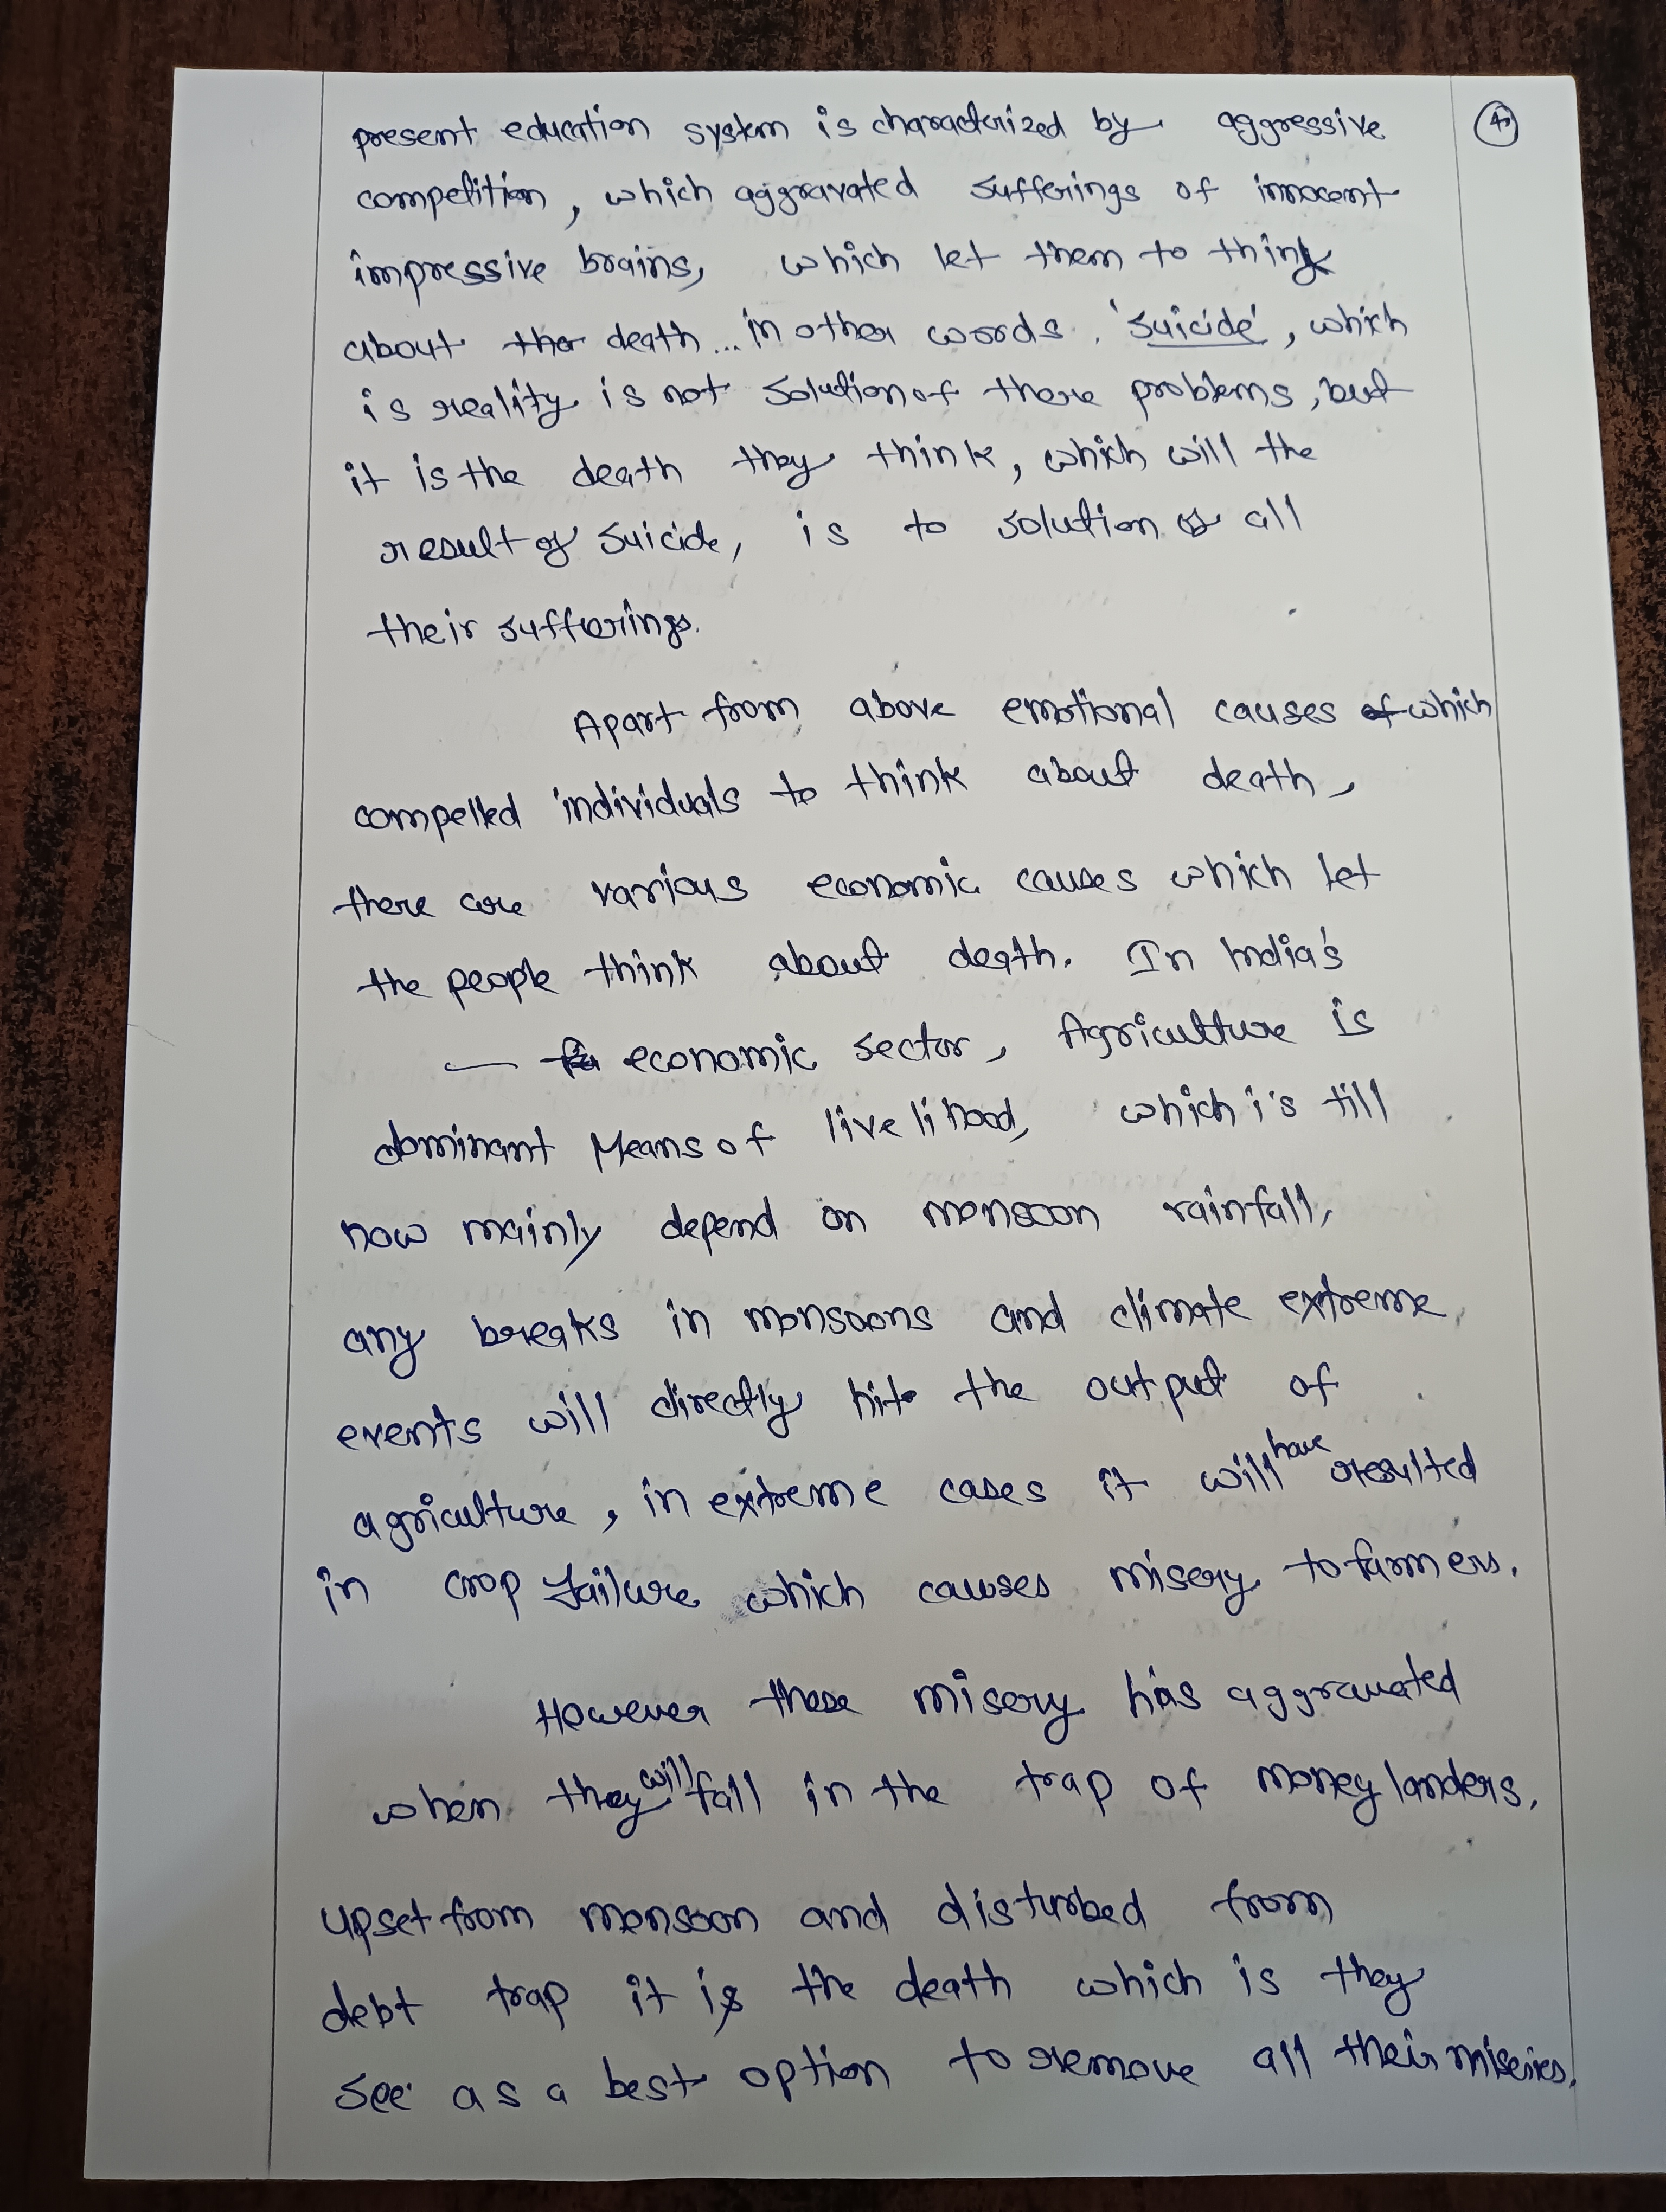 present education system is characterized by aggressive
4
competition, which aggravated sufferings of innocent
impressive brains, which let them to think
about death... in other words, 'suicide', which
is reality is not solution of there problems, but
it is the death they think, which will the
result of suicide, is to solution of all
their sufferings.
Apart from above emotional causes which
compelled individuals to think about death,
there are various economic causes which let
the people think about death. In India's
economic sector, Agriculture is
dominant Means of livelihood, which is till
now mainly depend on monsoon rainfall,
any breaks in monsoons and climate extreme
events will directly hit the output of
agriculture, in extreme cases it will have resulted
in crop failure which causes misery to farmers.
However these misery has aggravated
when they will fall in the trap of money landers.
upset from monsoon and disturbed from
debt trap it is the death which is they
see as a best option to remove all their miseries.